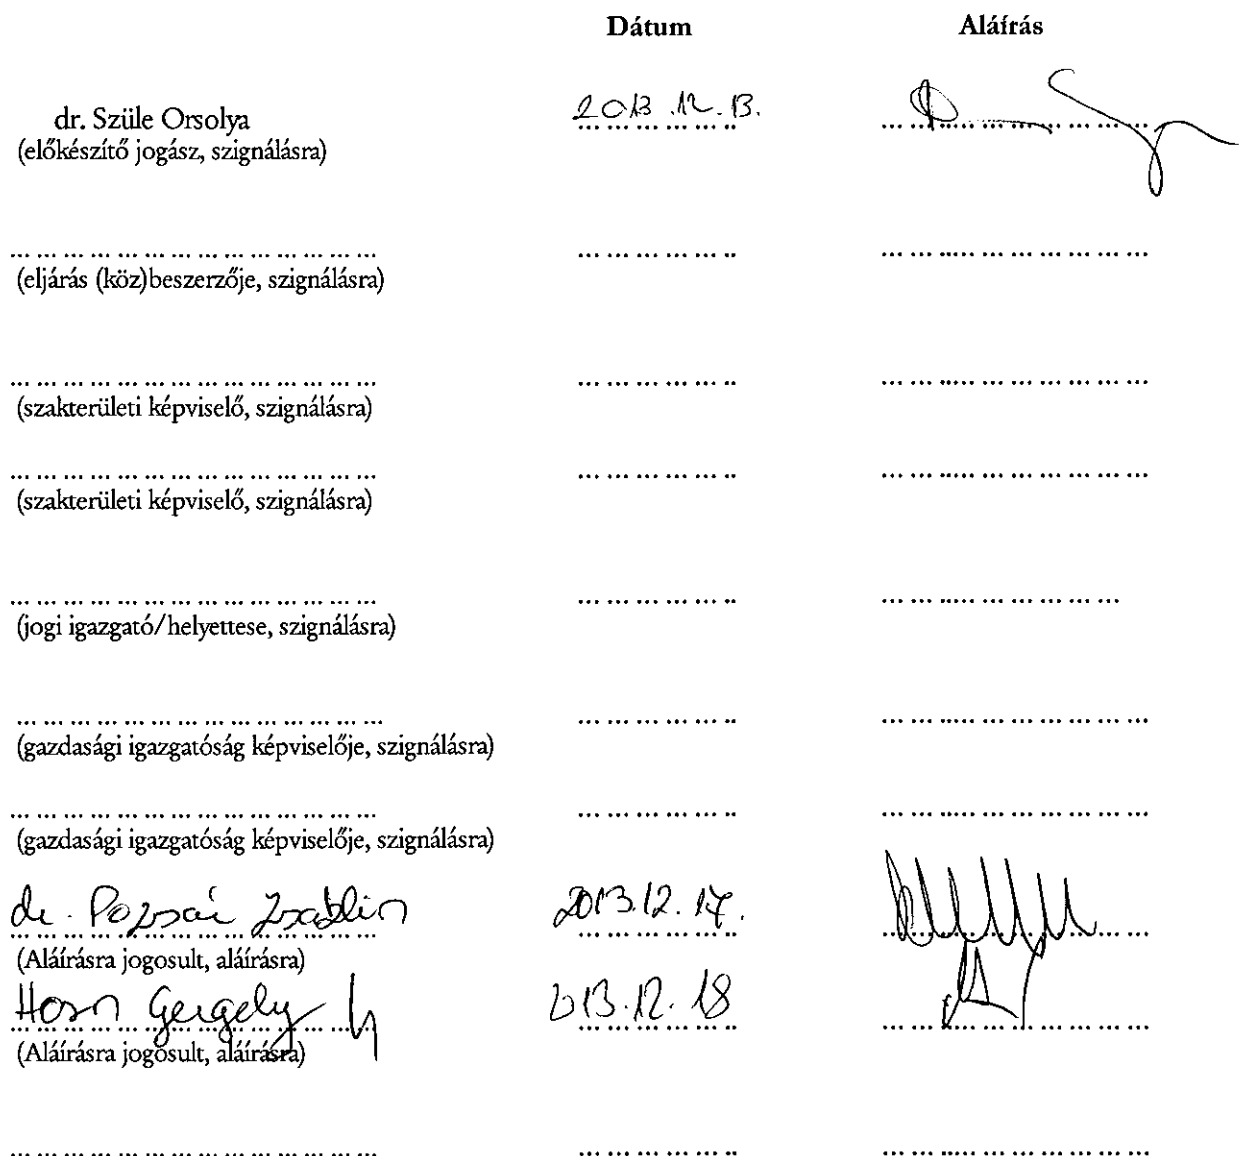 Dátum Aláírás
dr. Szüle Orsolya 2013.12.13.
(előkészítő jogász, szignálásra)
... ... ... ... ... ... ... ... ... ... ... ... ... ... ... ... ... ... ... .. ... ... ..... ... ... ... ... ... ...
(eljárás (köz)beszerzője, szignálásra)
... ... ... ... ... ... ... ... ... ... ... ... ... ... ... ... ... ... ... .. ... ... ..... ... ... ... ... ... ...
(szakterületi képviselő, szignálásra)
... ... ... ... ... ... ... ... ... ... ... ... ... ... ... ... ... ... ... .. ... ... ..... ... ... ... ... ... ...
(szakterületi képviselő, szignálásra)
... ... ... ... ... ... ... ... ... ... ... ... ... ... ... ... ... ... ... .. ... ... ..... ... ... ... ... ...
(jogi igazgató/helyettese, szignálásra)
... ... ... ... ... ... ... ... ... ... ... ... ... ... ... ... ... ... ... .. ... ... ..... ... ... ... ... ... ...
(gazdasági igazgatóság képviselője, szignálásra)
... ... ... ... ... ... ... ... ... ... ... ... ... ... ... ... ... ... ... .. ... ... ..... ... ... ... ... ... ...
(gazdasági igazgatóság képviselője, szignálásra)
dr. Pozsár 2013.12.17.
(Aláírásra jogosult, aláírásra)
Horn Gergely 2013.12.18
(Aláírásra jogosult, aláírásra)
... ... ... ... ... ... ... ... ... ... ... ... ... ... ... ... ... ... ... .. ... ... ..... ... ... ... ... ... ...